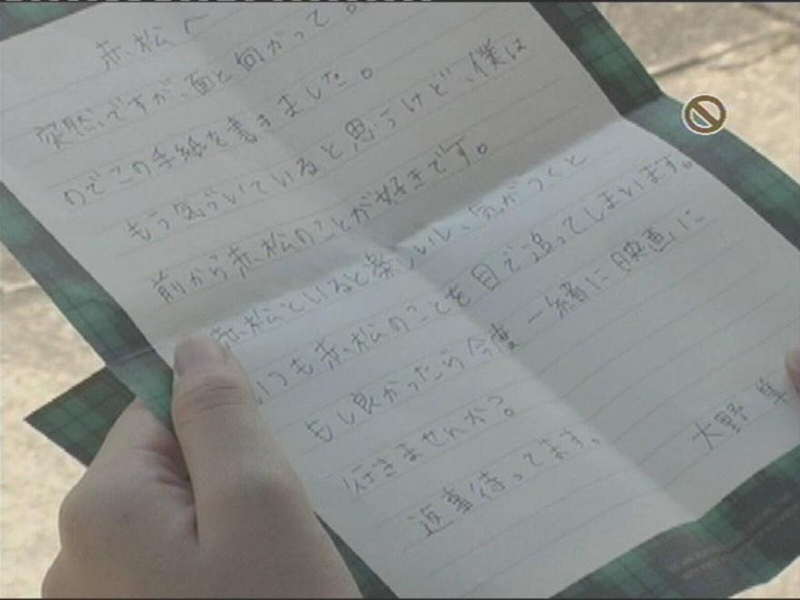 赤松へ
突然ですが、面と向かって
のでこの手紙を書きました。
もう気づいていると思うけど、僕は
前から赤松のことが好きです。
赤松といると楽しいし、気がつくと
いつも赤松のことを目で追ってしまいます。
もし良かったら今度一緒に映画に
行きませんか?
返事待ってます。
大野